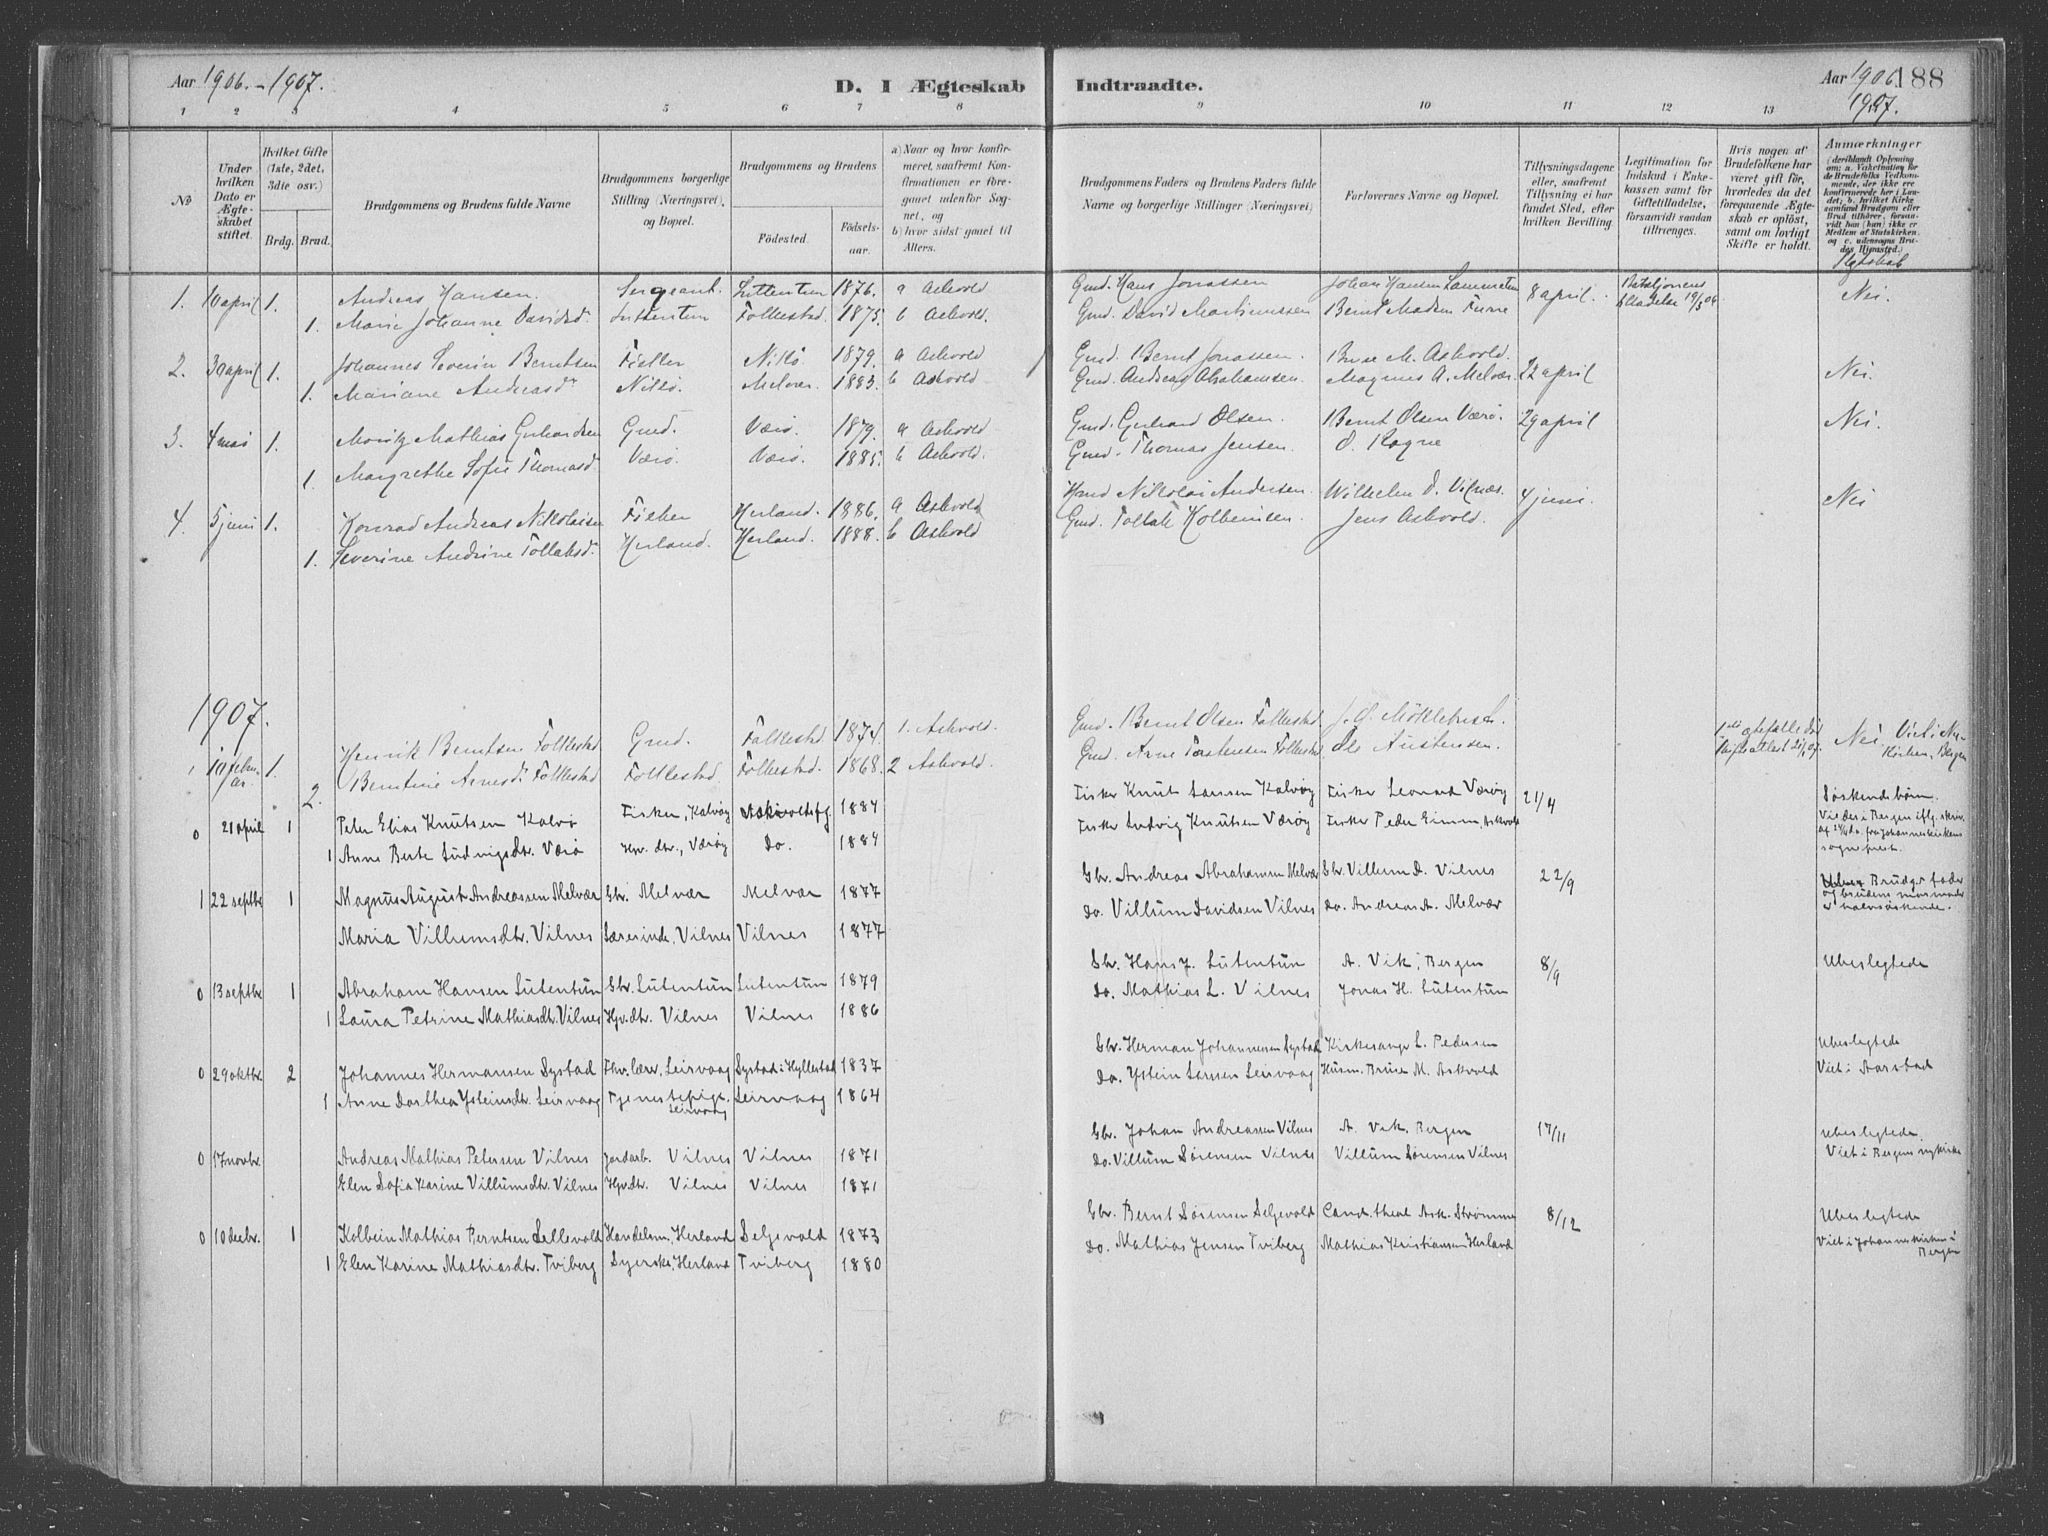 Aar 1906. - 1907.
D. I Ægteskab
Indtraadte.
Aar 1906. 188
1907.
1 2 3 4 5 6 7 8 9 10 11 12 13
No
Under hvilken Dato er Ægteskabet stiftet.
Hvilket Gifte (1ste, 2det, 3die osv.)
Brdg. Brud.
Brudgommens og Brudens fulde Navne
Brudgommens borgerlige Stilling (Næringsvei), og Bopæl.
Brudgommens og Brudens
Fødested. Fødselsaar.
a) Naar og hvor konfirmeret, saafremt Konfirmationen er foregaaet udenfor Sognet, og
b) hvor sidst gaaet til Alters.
Brudgommens Faders og Brudens Faders fulde Navne og borgerlige Stillinger (Næringsvei)
Forlovernes Navne og Bopæl.
Tillysningsdagene eller, saafremt Tillysning ei har fundet Sted, efter hvilken Bevilling
Legitimation for Indskud i Enkekassen samt for Giftetilladelse, forsaavidt saadan tiltrænges.
Hvis nogen af Brudefolkene har været gift før, hvorledes da det foregaaende Ægteskab er opløst, samt om lovligt Skifte er holdt.
Anmærkninger
(deriblandt Oplysning om: a. Vakcination for de Brudefolks Vedkommende, der ikke ere konfirmerede her i Landet; b. hvilket Kirkesamfund Brudgom eller Brud tilhører, forsaavidt han (hun) ikke er Medlem af Statskirken, og c. udensogns Brudes Hjemsted.)
Slegtskab
1. 10 april 1. Andreas Hansen. Sergeant. Luttentun 1876. a Askvold Gmd. Hans Jonassen Johan Hansen 8 april. Bataljonens Nei.
1. Marie Johanne Davidsd. Luttentun Folkestad. 1875. b Askvold. Gmd. David Martinussen Bernt Madsen Furne tilladelse 19/3 06
2. 30 april 1. Johannes Severin Berntsen Fisker Niksø 1879. a Askvold Gmd. Bernt Jonassen. Bruse M. Askvold. 22 april Nei.
1. Mariane Andreasd. Niksø. Melvær. 1883. b Askvold Gmd. Andreas Abrahamsen. Magnus A. Melvær.
3. 4 mai 1. Mathias Gerhardsen Gmd. Værø. 1879. a Askvold Gmd. Gerhard Olsen. Bernt Olsen Værø. 29 april Nei.
1. Margrethe Sofie Thomasd. Værø. Værø. 1885. b Askvold. Gmd. Thomas Jensen O. Ragne
4. 5 juni 1. Konrad Andreas Nikolaisen Fisker Herland. 1886. a Askvold Hmd Nikolai Andersen. Wilhelm D. Vilnæs. 4 juni. Nei
1. Severine Andrine Tollaksd. Herland. Herland. 1888. b Askvold Gmd. Tollak Kolbeinsen. Jens Askvold.
1907.
1 10 februar 1. Henrik Berntsen Folkestad Gmd. Folkestad. 1874. 1. Askvold. Gmd. Bernt Olsen Folkestad. J. O. Møklebust. Nei. Viet i Ny-
2. Berntine Arnesd. Folkestad Folkestad Folkestad. 1868. 2 Askvold. Gmd. Arne Torstensen Folkestad Ole Austensen. kirken, Bergen
0 21 april 1 Peter Elias Knutsen Kalvø Fisker, Kalvøy Askvoldsfg. 1884 Fisker Knut Larssen Kalvøy Fisker Leonard Værøy 21/4 Søskendebørn.
1 Anne Berte Ludvigsdtr. Værø Hp. dtr., Værøy Do. 1884 Fisker Ludvig Knutsen Værøy Fisker Peder Grimm, Askvold Viedes i Bergen iflg. skriv. af 24/4 d. a. fra Johanneskirkens sogneprest.
1 22 septbr 1 Magnus August Andreassen Melvær Gbr. Melvær Melvær 1877 Gbr. Andreas Abrahamsen Melvær Gbr. Villum D. Vilnes 22/9 Brudgs. fader og brudens mormoder er halvsøskende.
Maria Villumsdtr. Vilnes Lærerinde, Vilnes Vilnes 1877 Do. Villum Davidsen Vilnes Do. Andreas A. Melvær
0 13 septbr 1 Abraham Hansen Lutentun Gbr. Lutentun Lutentun 1879 Gbr. Hans J. Lutentun A. Vik, Bergen 8/9 Ubeslegtede
1 Laura Petrine Mathiasdtr. Vilnes Hp. dtr. Vilnes Vilnes 1886 Do. Mathias L. Vilnes Jonas H. Lutentun
0 29 oktbr. 2 Johannes Hermansen Systad Fhv. lærer, Leirvaag Systad i Hyllestad 1837 Gbr. Herman Johannessen Systad Kirkesanger L. Pedersen Ubeslegtede
1 Anne Dorthea Ysteinsdtr. Leirvaag Tjenestepige, Leirvaag Leirvaag 1864 Do. Ystein Larssen Leirvaag Husm. Bruse M. Askvold Viet i Aarstad
0 17 novbr. Andreas Mathias Petersen Vilnes Jordarb. Vilnes Vilnes 1871 Gbr. Johan Andreassen Vilnes A. Vik, Bergen 17/11 Ubeslegtede.
Elen Sofia Karine Villumsdtr. Vilnes Hp. dtr. Vilnes Vilnes 1871 Do. Villum Sørensen Vilnes Villum Sørensen Vilnes Viet i Bergens nykirke
0 10 decbr. 1 Kolbein Mathias Berntsen Sellevold Handelsm. Herland Selgevold 1873 Gbr. Bernt Sørensen Selgevold Cand. theol. Ask. Strømme 8/12 Ubeslegtede
1 Elen Karine Mathiasdtr. Tviberg Syerske, Herland Tviberg 1880 Do. Mathias Jensen Tviberg Mathias Kristiansen Herland Viet i Johanneskirken i Bergen